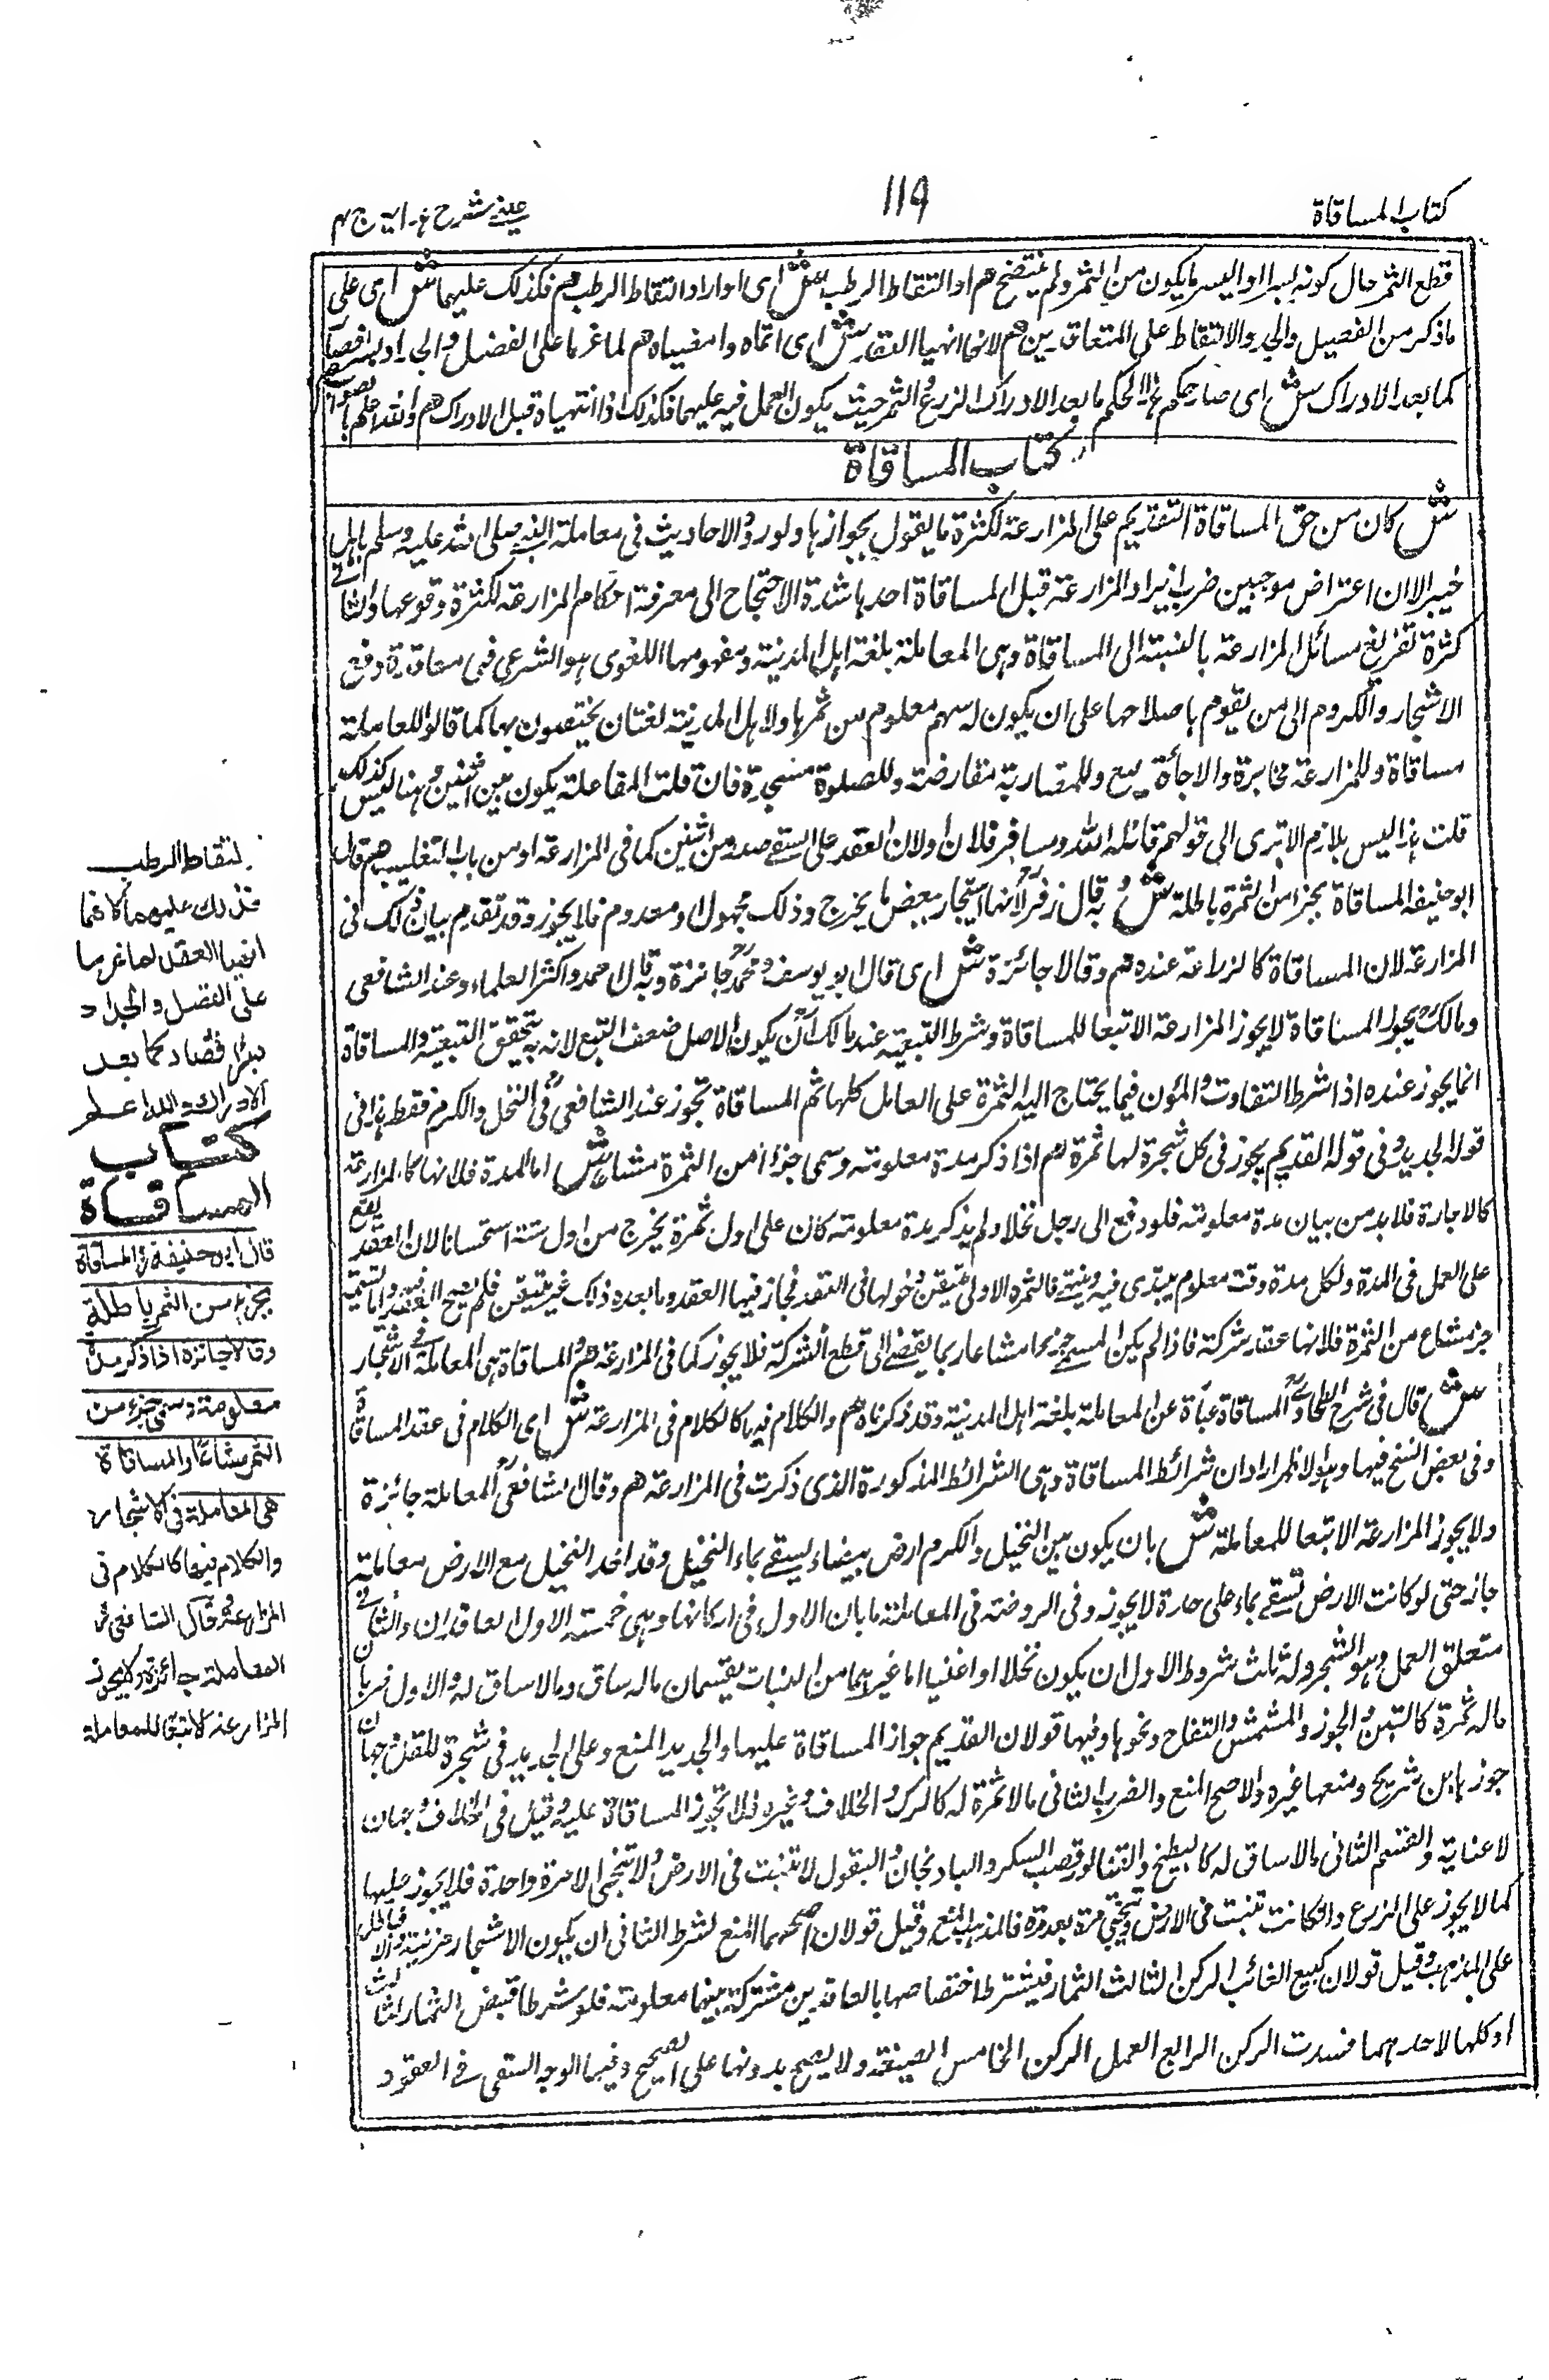 كتاب المساقاة
١١٩
عينى شرح هداية ج ٤
قطع الثمر حال كونه بسرا والبسر ما يكون من الثمر ولم ينضج هم او التقاط الرطب ش اى او ارادا التقاط الرطب هم فكذلك عليهما ش اى على
ما ذكر من الفصيل والجد والالتقاط على المتعاقدين هم لانهما انهيا العقد ش اى اتماه وامضياه هم لما عزما على الفصل والجداد بسرا فصار
كما بعد الادراك ش اى صار حكم هذا كحكم ما بعد الادراك الزرع والثمر حيث يكون العمل فيه عليهما فكذلك اذا انتهياه قبل الادراك هم والله اعلم بالصواب
كتاب المساقاة
ش كان من حق المساقاة التقديم على المزارعة لكثرة ما يقول بجوازها ولورود الاحاديث فى معاملة النبى صلى الله عليه وسلم باهل
خيبر الا ان اعتراض موجبين ضرب ايراد المزارعة قبل المساقاة احدها شدة الاحتجاج الى معرفة احكام المزارعة لكثرة وقوعها والثانى
كثرة تفريع مسائل المزارعة بالنسبة الى المساقاة وهى المعاملة بلغة اهل المدينة ومفهومها اللغوى هو الشرعى فهى معاقدة دفع
الاشجار والكروم الى من يقوم باصلاحها على ان يكون له سهم معلوم من ثمرها ولاهل المدينة لغتان يختصون بها كما قالوا للمعاملة
مساقاة وللمزارعة مخابرة والاجارة بيع وللمضاربة مقارضة وللصلوة سجدة فان قلت المفاعلة يكون بين اثنين وهنا ليس كذلك
قلت هذا ليس بلازم الا ترى الى قولهم قاتله الله وسافر فلان ولان العقد على السقى صدر من اثنين كما فى المزارعة او من باب التغليب هم قال
ابو حنيفة المساقاة بجزء من الثمرة باطلة ش وبه قال زفر لانها استيجار ببعض ما يخرج وذلك مجهول او معدوم فلا يجوز وقد تقدم بيان ذلك فى
المزارعة لان المساقاة كالزراعة عنده هم وقالا جائزة ش اى قال ابو يوسف ومحمد جائزة وبه قال احمد واكثر العلماء وعند الشافعى
ومالك يجوز المساقاة لا يجوز المزارعة الا تبعا للمساقاة وشرط التبعية عند مالك ان يكون الاصل ضعف التبع لانه به يتحقق التبعية والمساقاة
انما يجوز عنده اذا شرط التفاوت والمؤن فيما يحتاج اليه الثمرة على العامل كلها ثم المساقاة تجوز عند الشافعى فى النخل والكرم فقط هذا فى
قوله الجديد وفى قوله القديم يجوز فى كل شجرة لها ثمرة هم اذا ذكر مدة معلومة وسمى جزءا من الثمرة مشاعا ش اما المدة فلانها كالمزارعة
كالاجارة فلا بد من بيان مدة معلومة فلو دفع الى رجل نخلا ولم يذكر مدة معلومة كان على اول ثمرة يخرج من اول سنة استحسانا لان العقد يقع
على العمل فى المدة ولكل مدة وقت معلوم يبتدى فيه وينتهى فالثمرة الاولى متيقن دخولها فى العقد فجاز فيها العقد وما بعده ذلك غير متيقن فلم يصح العقد فيه واما تسمية
جزء مشاع من الثمرة فلانها عقد شركة فاذا لم يكن المسمى جزءا مشاعا ربما يفضى الى قطع الشركة فلا يجوز كما فى المزارعة هم والمساقاة هى المعاملة فى الاشجار
ش قال فى شرح الطحاوى المساقاة عبارة عن المعاملة بلغة اهل المدينة وقد ذكرناه هم والكلام فيها كالكلام فى المزارعة ش اى الكلام فى عقد المساقاة
وفى بعض النسخ فيها وهو لاظهر اراد ان شرائط المساقاة وهى الشرائط المذكورة الذى ذكرت فى المزارعة هم وقال الشافعى المعاملة جائزة
ولا يجوز المزارعة الا تبعا للمعاملة ش بان يكون بين النخيل والكرم ارض بيضاء يسقى بماء النخيل وقد اخذ النخيل مع الارض معاملة
جاز حتى لو كانت الارض تسقى بماء على حدة لا يجوز وفى الروضة فى المعاملة بابان الاول فى اركانها وهى خمسة الاول العاقدان والثانى
متعلق العمل وهو الشجر وله ثلث شروط الاول ان يكون نخلا او اعنبا اما غيرهما من النبات يقيسمان ماله ساق ومالا ساق له والاول ضربان
ماله ثمرة كالتين والجوز والمشمش والتفاح ونحوها وفيها قولان القديم جواز المساقاة عليها والجديد المنع وعلى الجديد فى شجرة المقل وجهان
جوزها ابن شريح ومنعها غيره والاصح المنع والضرب الثانى مالا ثمرة له كالدلب والخلاف وغيره فلا تجوز المساقاة عليه وقيل فى الخلاف وجهان
لاعناية والقسم الثانى مالا ساق له كالبطيخ والقثاء وقصب السكر والباذنجان والبقول لا تنبت فى الارض ولا تجنى الا مرة واحدة فلا يجوز عليها
كما لا يجوز على الزرع وان كانت تنبت فى الارض وتجنى مرة بعد مرة فالمذهب المنع وقيل قولان اصحهما المنع الشرط الثانى ان يكون الاشجار مرئية والا فباطل
على المذهب وقيل قولان كبيع الغائب الركن الثالث الثمار فيشترط اختصاصها بالعاقدين مشتركة بينهما معلومة فلو شرطا قبض الثمار لثالث
او كلها لاحدهما فسدت الركن الرابع العمل الركن الخامس الصيغة ولا يصح بدونها على الصحيح وفيها الوجه المتقى فى العقود
لتقاط الرطب
فذلك عليهما لانهما
انهيا العقد لما عزما
على الفصل والجداد
بسرا فصار كما بعد
الادراك والله اعلم
كتاب
المساقاة
قال ابو حنيفة رح المساقاة
بجزء من الثمر باطلة
وقالا جائزة اذا ذكر مدة
معلومة وسمى جزء من
الثمر مشاعا والمساقاة
هى المعاملة فى الاشجار
والكلام فيها كالكلام فى
المزارعة وقال الشافعى رح
المعاملة جائزة ولا يجوز
المزارعة الا تبعا للمعاملة